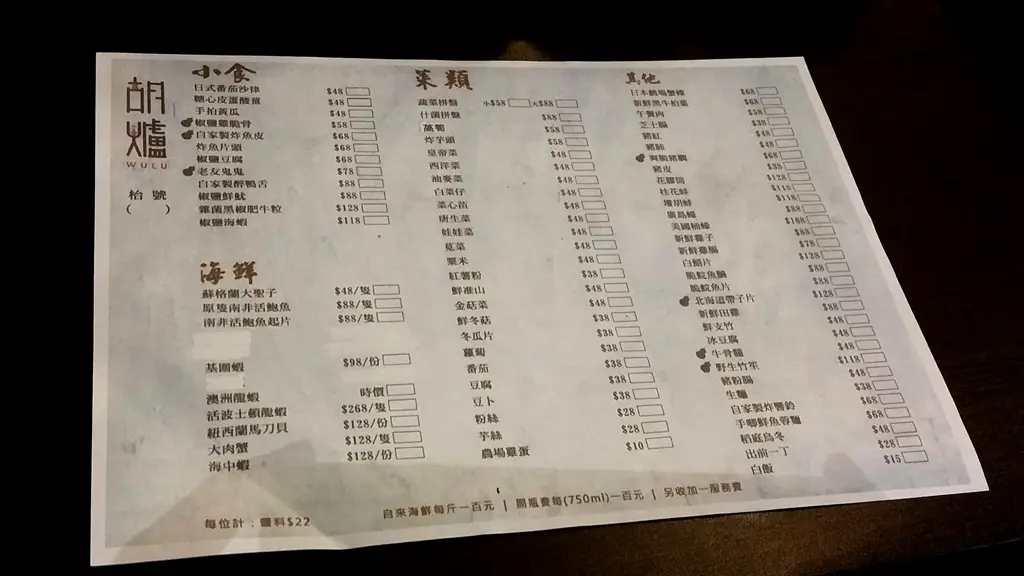 胡
爐
WULU
枱號
( )
小食
日式番茄沙律 $48
糖心皮蛋酸薑 $48
手拍黃瓜 $48
椒鹽雞脆骨 $58
自家製炸魚皮 $68
炸魚片頭 $68
椒鹽豆腐 $68
老友鬼鬼 $78
自家製醉鴨舌 $88
椒鹽鮮魷 $88
雜菌黑椒肥牛粒 $128
椒鹽海蝦 $118
海鮮
蘇格蘭大聖子 $48/隻
原隻南非活鮑魚 $88/隻
南非活鮑魚起片 $88/隻
基圍蝦 $98/份
澳洲龍蝦 時價
活波士頓龍蝦 $268/隻
紐西蘭馬刀貝 $128/份
大肉蟹 $128/隻
海中蝦 $128/份
菜類
蔬菜拼盤 小$58 大$88
什菌拼盤 $88
萵筍 $58
炸芋頭 $58
皇帝菜 $48
西洋菜 $48
油麥菜 $48
白菜仔 $48
菜心苗 $48
唐生菜 $48
娃娃菜 $48
莧菜 $48
粟米 $48
紅薯粉 $38
鮮淮山 $48
金菇菜 $48
鮮冬菇 $38
冬瓜片 $38
蘿蔔 $38
番茄 $38
豆腐 $38
豆卜 $38
粉絲 $28
芋絲 $28
農場雞蛋 $10
其他
日本鶴場蟹棒 $68
新鮮黑牛柏葉 $68
午餐肉 $58
芝士腸 $38
豬紅 $48
豬膶 $48
爽脆豬䐁 $68
豬皮 $38
花膠筒 $128
桂花蚌 $118
珊瑚蚌 $118
廣島蠔 $88
美國桶蠔 $168
新鮮雞子 $88
新鮮雞腸 $78
白鱔片 $128
脆鯇魚腩 $88
脆鯇魚片 $88
北海道帶子片 $128
新鮮田雞 $88
鮮支竹 $48
冰豆腐 $48
牛骨髓 $48
野生竹笙 $118
豬粉腸 $48
生麵 $38
自家製炸響鈴 $68
手唧鮮魚蓉麵 $68
稻庭烏冬 $48
出前一丁 $28
白飯 $15
每位計：醬料$22
自來海鮮每斤一百元 | 開瓶費每(750ml)一百元 | 另收加一服務費